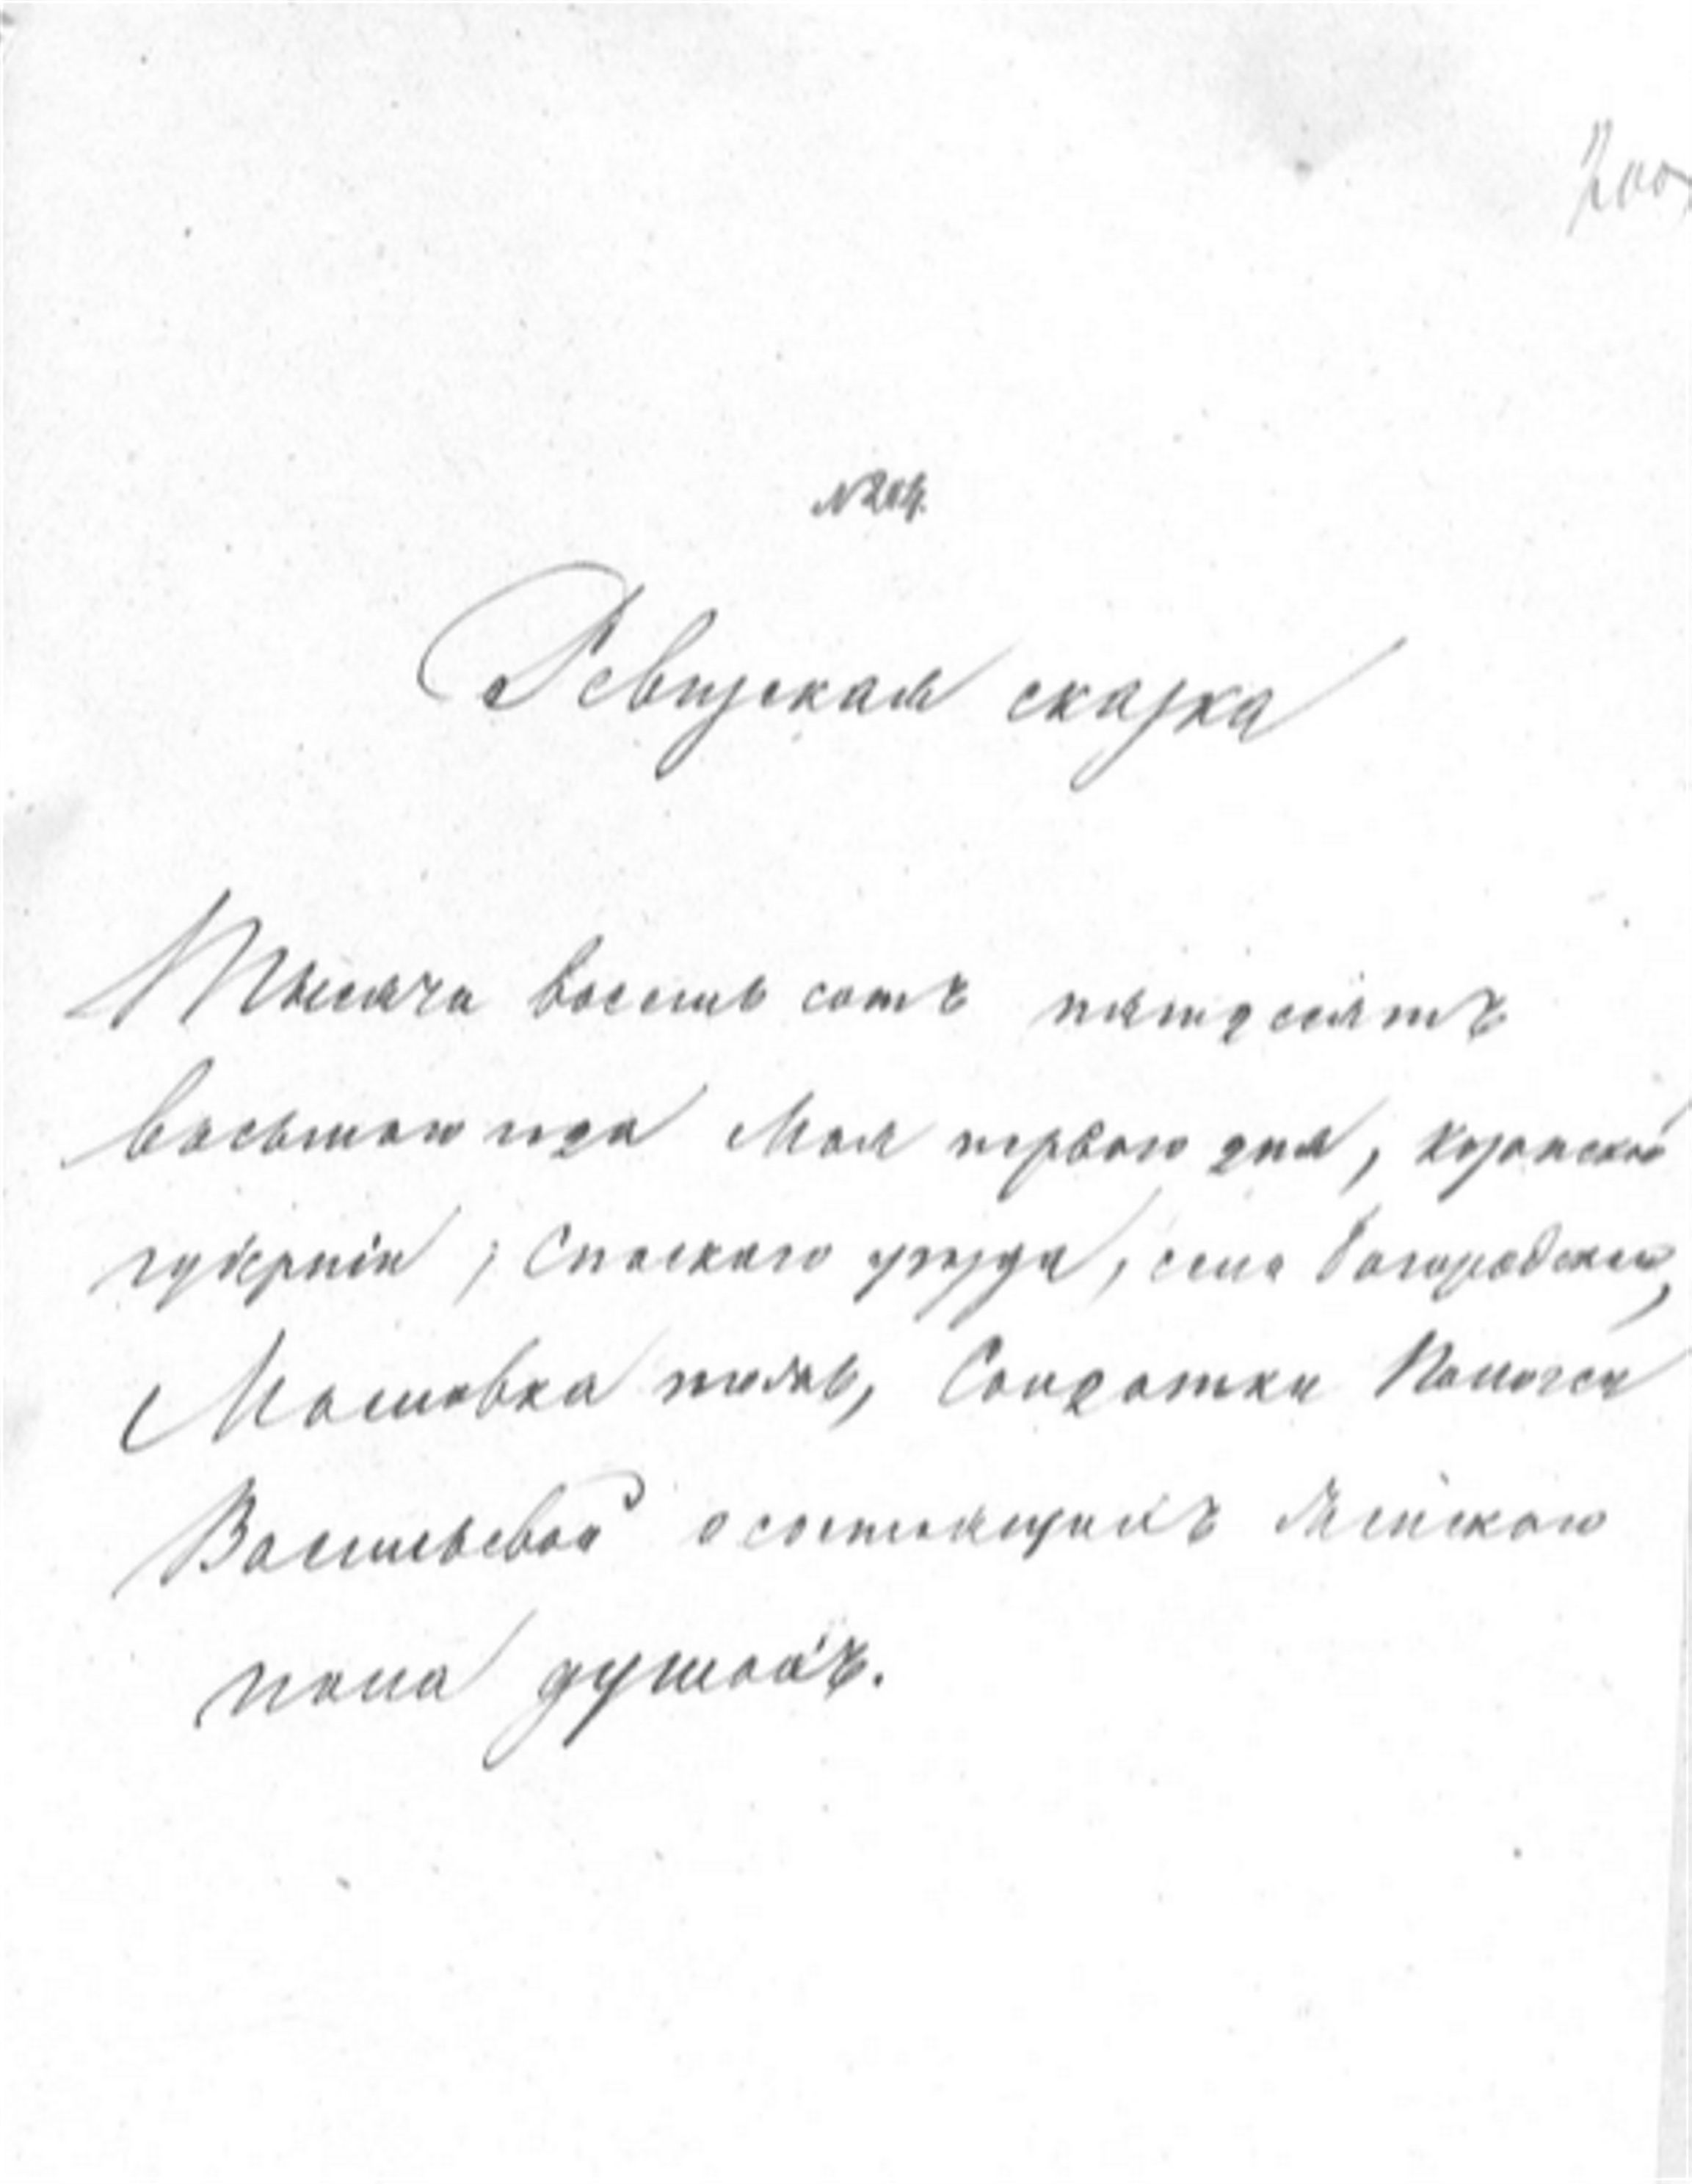 № 204.
Ревизская сказка
Тысяча восемь сотъ пятдесятъ
восьмаго года Мая перваго дня, Казанской
губерніи, Спаскаго уѣзда, села Богородскаго,
тожъ, Солдатки
Васильевой о состоящихъ женскаго
пола душахъ.